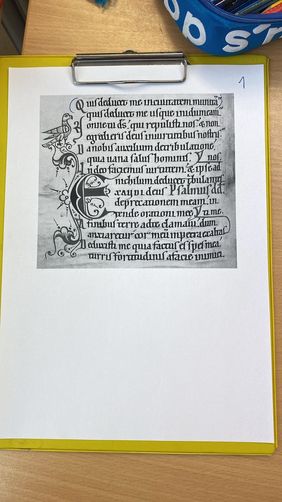 op s
1
Quis deducet me in civitatem munita,
quis deducet me usque in idumeam.
Nonne tu ds, qui repulisti nos, & non
egredieris deus in virtutibus nostris.
Da nobis auxilium de tribulatione,
quia vana salus hominis. Ynos.
In deo faciemus virtutem, & ipse ad
nichilum deducet tribulant
Exaudi deus Psalmus dd.
deprecationem meam, in
tende orationi mee
finibus terre ad te clamavi, dum
anxiaretur cor meu in petra exaltas
Deduxisti me quia factus es spes mea,
turris fortitudinis a facie inimici.